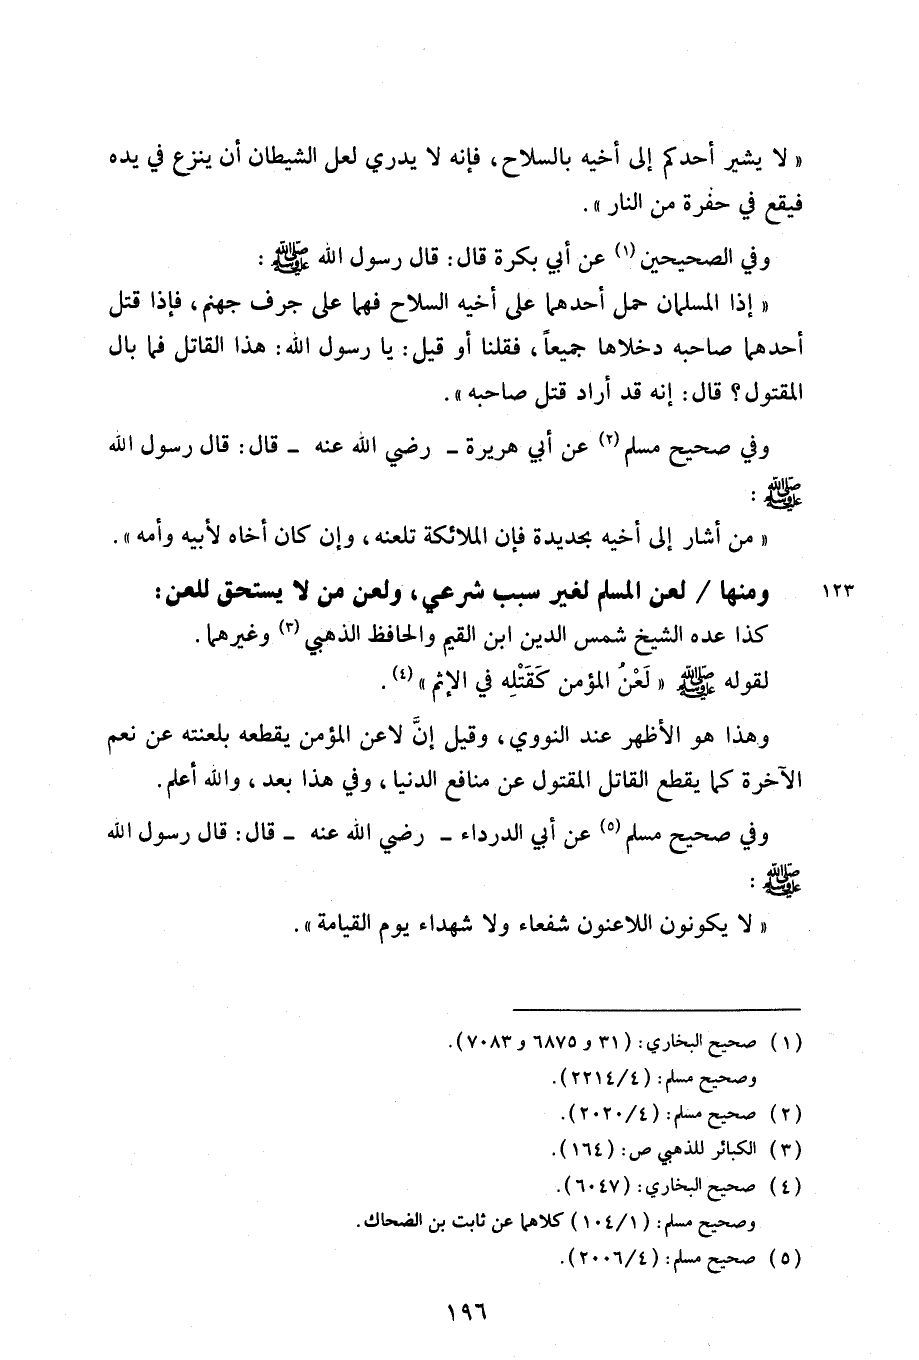 « لا يشير أحدكم إلى أخيه بالسلاح، فإنه لا يدري لعل الشيطان أن ينزع في يده
فيقع في حفرة من النار ».
وفي الصحيحين(١) عن أبي بكرة قال: قال رسول الله ﷺ :
« إذا المسلمان حمل أحدهما على أخيه السلاح فهما على جرف جهنم، فإذا قتل
أحدهما صاحبه دخلاها جميعاً، فقلنا أو قيل: يا رسول الله: هذا القاتل فما بال
المقتول؟ قال: إنه قد أراد قتل صاحبه ».
وفي صحيح مسلم(٢) عن أبي هريرة ـ رضي الله عنه ـ قال: قال رسول الله
ﷺ :
« من أشار إلى أخيه بحديدة فإن الملائكة تلعنه، وإن كان أخاه لأبيه وأمه ».
١٢٣ ومنها / لعن المسلم لغير سبب شرعي، ولعن من لا يستحق للعن:
كذا عده الشيخ شمس الدين ابن القيم والحافظ الذهبي(٣) وغيرهما.
لقوله ﷺ « لَعْنُ المؤمن كَقَتْلِه في الإثم »(٤).
وهذا هو الأظهر عند النووي، وقيل إنَّ لاعن المؤمن يقطعه بلعنته عن نعم
الآخرة كما يقطع القاتل المقتول عن منافع الدنيا، وفي هذا بعد، والله أعلم.
وفي صحيح مسلم(٥) عن أبي الدرداء ـ رضي الله عنه ـ قال: قال رسول الله
ﷺ :
« لا يكونون اللاعنون شفعاء ولا شهداء يوم القيامة ».
(١) صحيح البخاري: (٣١ و ٦٨٧٥ و ٧٠٨٣).
وصحيح مسلم: (٢٢١٤/٤).
(٢) صحيح مسلم: (٢٠٢٠/٤).
(٣) الكبائر للذهبي ص: (١٦٤).
(٤) صحيح البخاري: (٦٠٤٧).
وصحيح مسلم: (١٠٤/١) كلاهما عن ثابت بن الضحاك.
(٥) صحيح مسلم: (٢٠٠٦/٤).
١٩٦